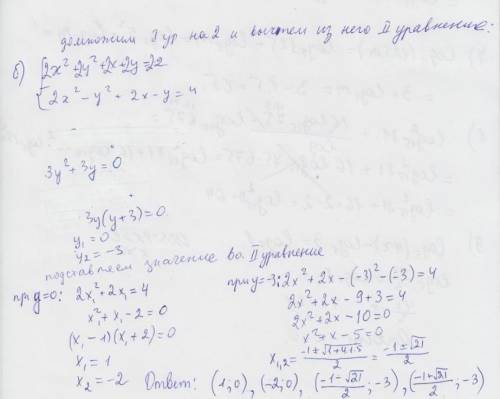 домножим I ур на 2 и вычтем из него II уравнение:
б) { 2x² + 2y² + 2x + 2y = 22
2x² - y² + 2x - y = 4
3y² + 3y = 0
3y(y + 3) = 0
y₁ = 0
y₂ = -3
подставляем значение во II уравнение
при y=0: 2x₁² + 2x₁ = 4
x₁² + x₁ - 2 = 0
(x₁ - 1)(x₁ + 2) = 0
x₁ = 1
x₂ = -2
при y=-3: 2x² + 2x - (-3)² - (-3) = 4
2x² + 2x - 9 + 3 = 4
2x² + 2x - 10 = 0
x² + x - 5 = 0
x₁,₂ = (-1 ± √(1+4·5))/2 = (-1 ± √21)/2
Ответ: (1; 0), (-2; 0), ((-1-√21)/2; -3), ((-1+√21)/2; -3)